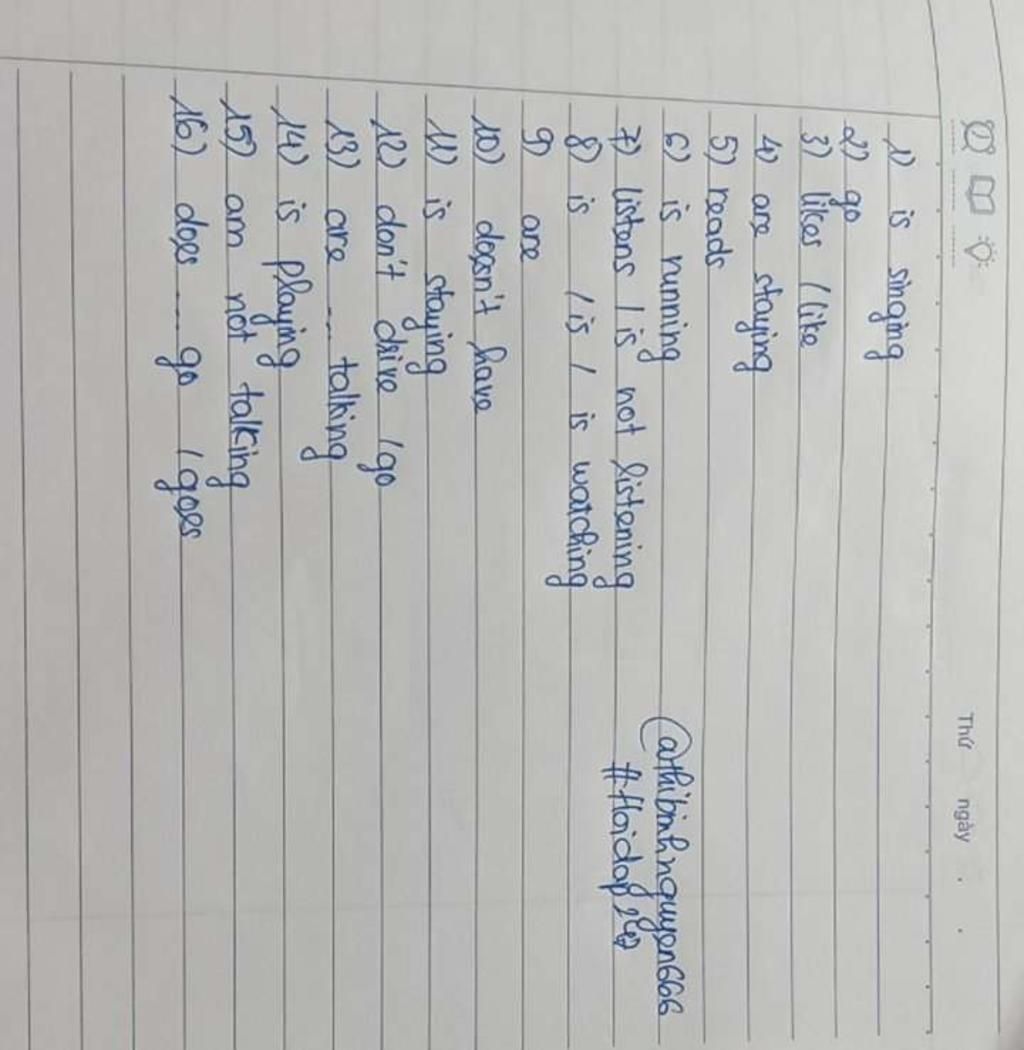 Thứ ngày
1) is singing
2) go
3) likes / like
4) are staying
5) reads
6) is running
7) listens / is not listening
8) is / is / is watching
9) are
10) doesn't have
11) is staying
12) don't drive / go
13) are ... talking
14) is playing
15) am not talking
16) does .... go / goes
@thibinhnguyen666
#Hoidap247